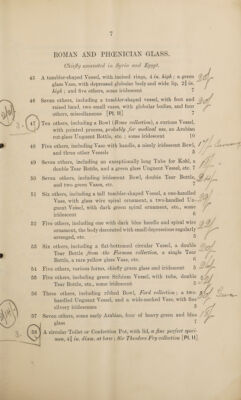 7
ROMAN AND PHŒNICIAN GLASS.
Chiefly unearthed in Syria and Egypt.
45 A tumbler-shaped Vessel, with incised rings, 4 in. high; a green
glass Vase, with depressed globular body and wide lip, 2½ in.
high; and five others, some iridescent 7
46 Seven others, including a tumbler-shaped vessel, with foot and
raised band, two small vases, with globular bodies, and four
others, miscellaneous [Pl. II] 7
47 Ten others, including a Bowl (Rome collection), a curious Vessel,
with pointed prunus, probably for medical use, an Arabian
cut-glass Unguent Bottle, etc.; some iridescent 10
48 Five others, including Vase with handle, a nicely iridescent Bowl,
and three other Vessels 5
49 Seven others, including an exceptionally long Tube for Kohl, a
double Tear Bottle, and a green glass Unguent Vessel, etc. 7
50 Seven others, including iridescent Bowl, double Tear Bottle,
and two green Vases, etc.
51 Six others, including a tall tumbler-shaped Vessel, a one-handled
Vase, with glass wire spiral ornament, a two-handled Un-
guent Vessel, with dark green spiral ornament, etc., some
iridescent 6
52 Five others, including one with dark blue handle and spiral wire
ornament, the body decorated with small depressions regularly
arranged, etc. 5
53 Six others, including a flat-bottomed circular Vessel, a double
Tear Bottle from the Forman collection, a single Tear
Bottle, a rare yellow glass Vase, etc. 6
54 Five others, various forms, chiefly green glass and iridescent 5
55 Five others, including green Stibium Vessel, with tube, double
Tear Bottle, etc., some iridescent 5
56 Three others, including ribbed Bowl, Ford collection; a two-
handled Unguent Vessel, and a wide-necked Vase, with fine
silvery iridescence 3
57 Seven others, some early Arabian, four of heavy green and blue
glass 7
58 A circular Toilet or Confection Pot, with lid, a fine perfect speci-
men, 4¾ in. diam. at base; Sir Theodore Fry collection [Pl. II]